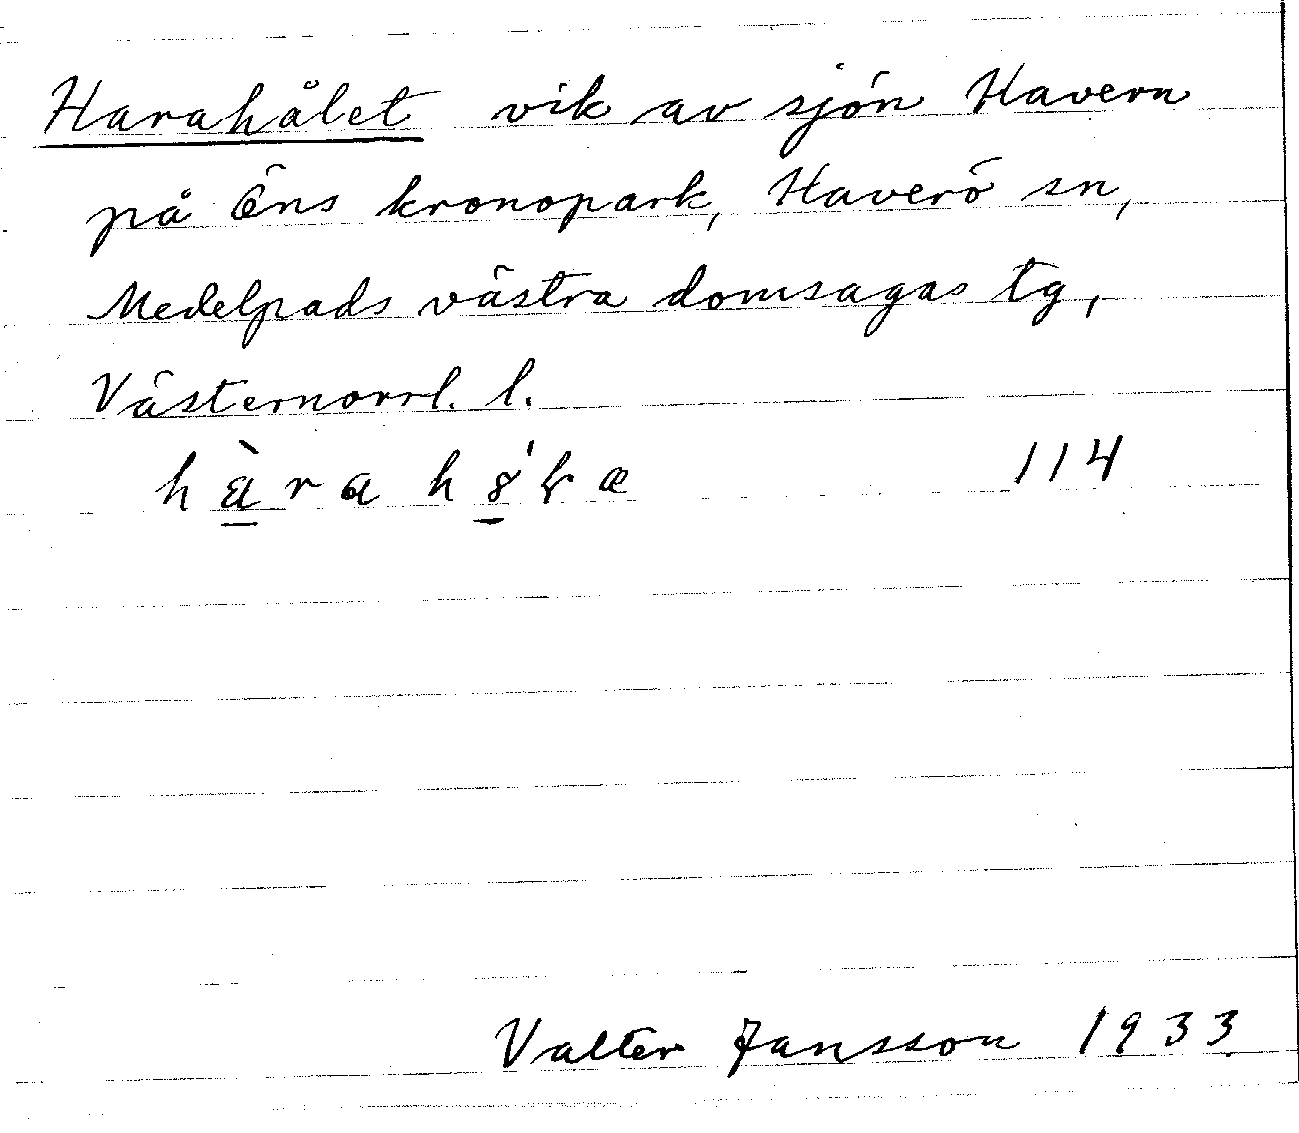 Harahålet vik av sjön Havern
på Öns kronopark, Haverö sn,
Medelpads västra domsagas tg,
Västernorrl. l.
hàra 114
Valter Jansson 1933